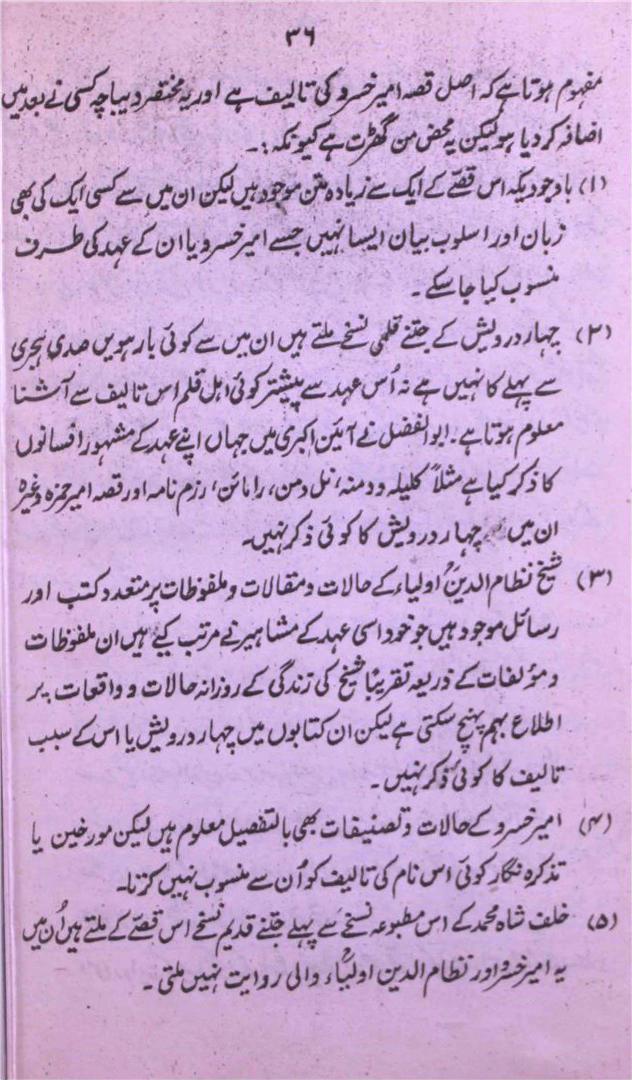 ۳۶
مفہوم ہوتا ہے کہ اصل قصہ امیر خسرو کی تالیف ہے اور یہ مختصر دیباچہ کسی نے بعد میں
اضافہ کر دیا ہو لیکن یہ محض من گھڑت ہے کیونکہ :۔
(۱) باوجودیکہ اس قصّے کے ایک سے زیادہ متن موجود ہیں لیکن ان میں سے کسی ایک کی بھی
زبان اور اسلوب بیان ایسا نہیں جسے امیر خسرو یا ان کے عہد کی طرف
منسوب کیا جا سکے ۔
(۲) چہار درویش کے جتنے قلمی نسخے ملتے ہیں ان میں سے کوئی بارہویں صدی ہجری
سے پہلے کا نہیں ہے نہ اُس عہد سے پیشتر کوئی اہل قلم اس تالیف سے آشنا
معلوم ہوتا ہے ۔ ابوالفضل نے آئین اکبری میں جہاں اپنے عہد کے مشہور افسانوں
کا ذکر کیا ہے مثلاً کلیلہ و دمنہ، نل دمن، رامائن، رزم نامہ اور قصہ امیر حمزہ وغیرہ
ان میں چہار درویش کا کوئی ذکر نہیں۔
(۳) شیخ نظام الدینؒ اولیاء کے حالات و مقالات و ملفوظات پر متعدد کتب اور
رسائل موجود ہیں جو خود اسی عہد کے مشاہیر نے مرتب کیے ہیں ان ملفوظات
و مؤلفات کے ذریعہ تقریباً شیخ کی زندگی کے روزانہ حالات و واقعات پر
اطلاع بہم پہنچ سکتی ہے لیکن ان کتابوں میں چہار درویش یا اس کے سبب
تالیف کا کوئی ذکر نہیں ۔
(۴) امیر خسرو کے حالات و تصنیفات بھی بالتفصیل معلوم ہیں لیکن مورخین یا
تذکرہ نگار کوئی اس نام کی تالیف کو اُن سے منسوب نہیں کرتا۔
(۵) خلف شاہ محمد کے اس مطبوعہ نسخے سے پہلے جتنے قدیم نسخے اس قصّے کے ملتے ہیں اُن میں
یہ امیر خسرو اور نظام الدین اولیاؒء والی روایت نہیں ملتی ۔